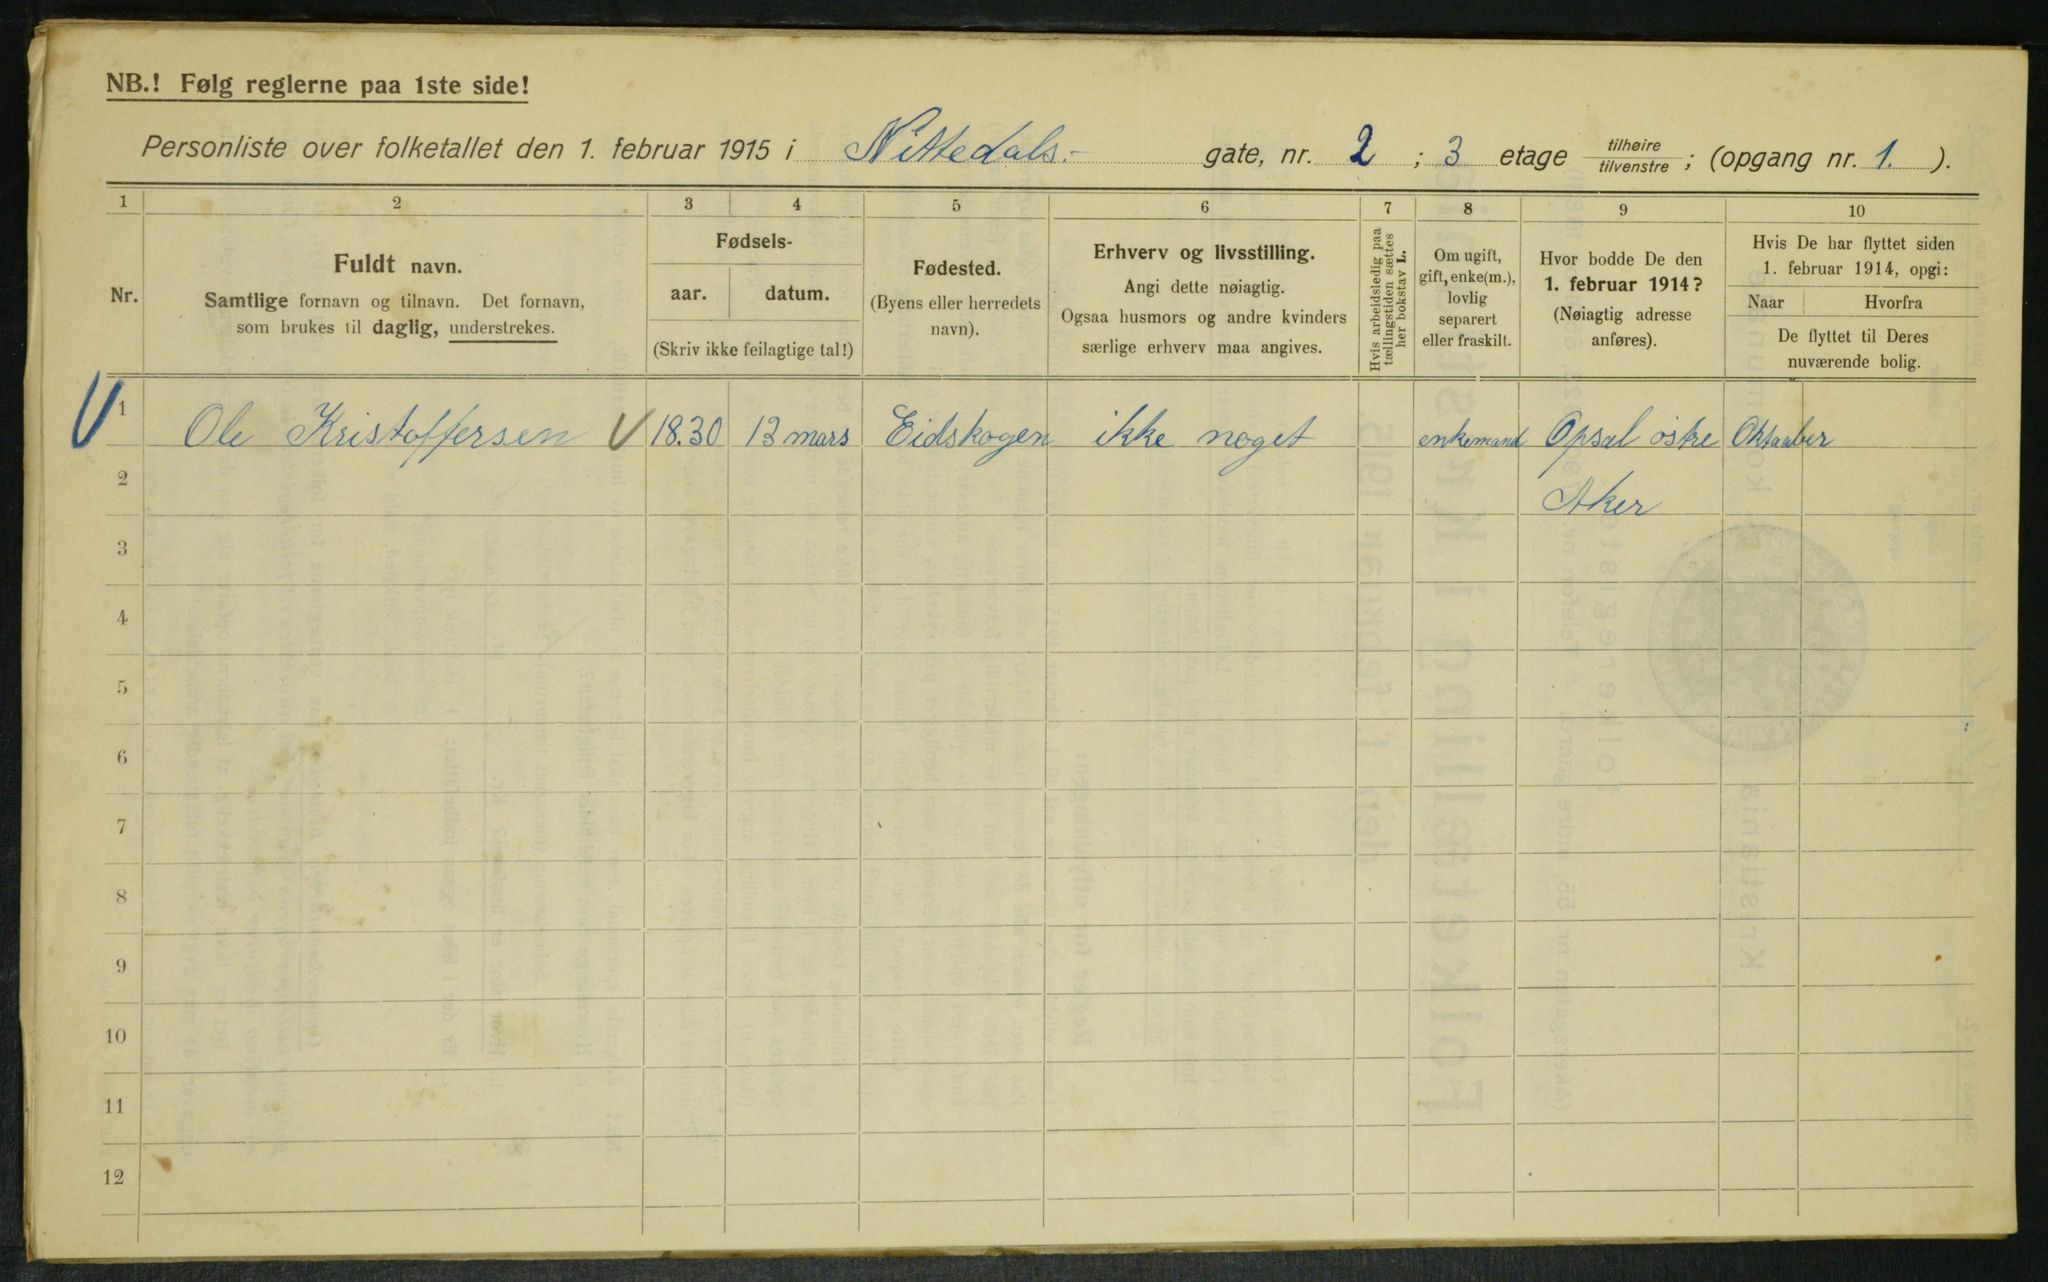 NB.! Følg reglerne paa 1ste side!
Personliste over folketallet den 1. februar 1915 i Nittedals.- gate, nr. 2 ; 3 etage tilhøire / tilvenstre ; (opgang nr. 1. ).
1 2 3 4 5 6 7 8 9 10
Nr.
Fuldt navn.
Samtlige fornavn og tilnavn. Det fornavn,
som brukes til daglig, understrekes.
Fødsels-
aar. datum.
(Skriv ikke feilagtige tal!)
Fødested.
(Byens eller herredets
navn).
Erhverv og livsstilling.
Angi dette nøiagtig.
Ogsaa husmors og andre kvinders
særlige erhverv maa angives.
Hvis arbeidsledig paa
tællingstiden sættes
her bokstav L.
Om ugift,
gift, enke(m.),
lovlig
separert
eller fraskilt.
Hvor bodde De den
1. februar 1914?
(Nøiagtig adresse
anføres).
Hvis De har flyttet siden
1. februar 1914, opgi:
Naar Hvorfra
De flyttet til Deres
nuværende bolig.
1 Ole Kristoffersen 18.30 13 mars Eidskogen ikke noget enkemand Opsal østre Oktaaber
2 Aker
3
4
5
6
7
8
9
10
11
12